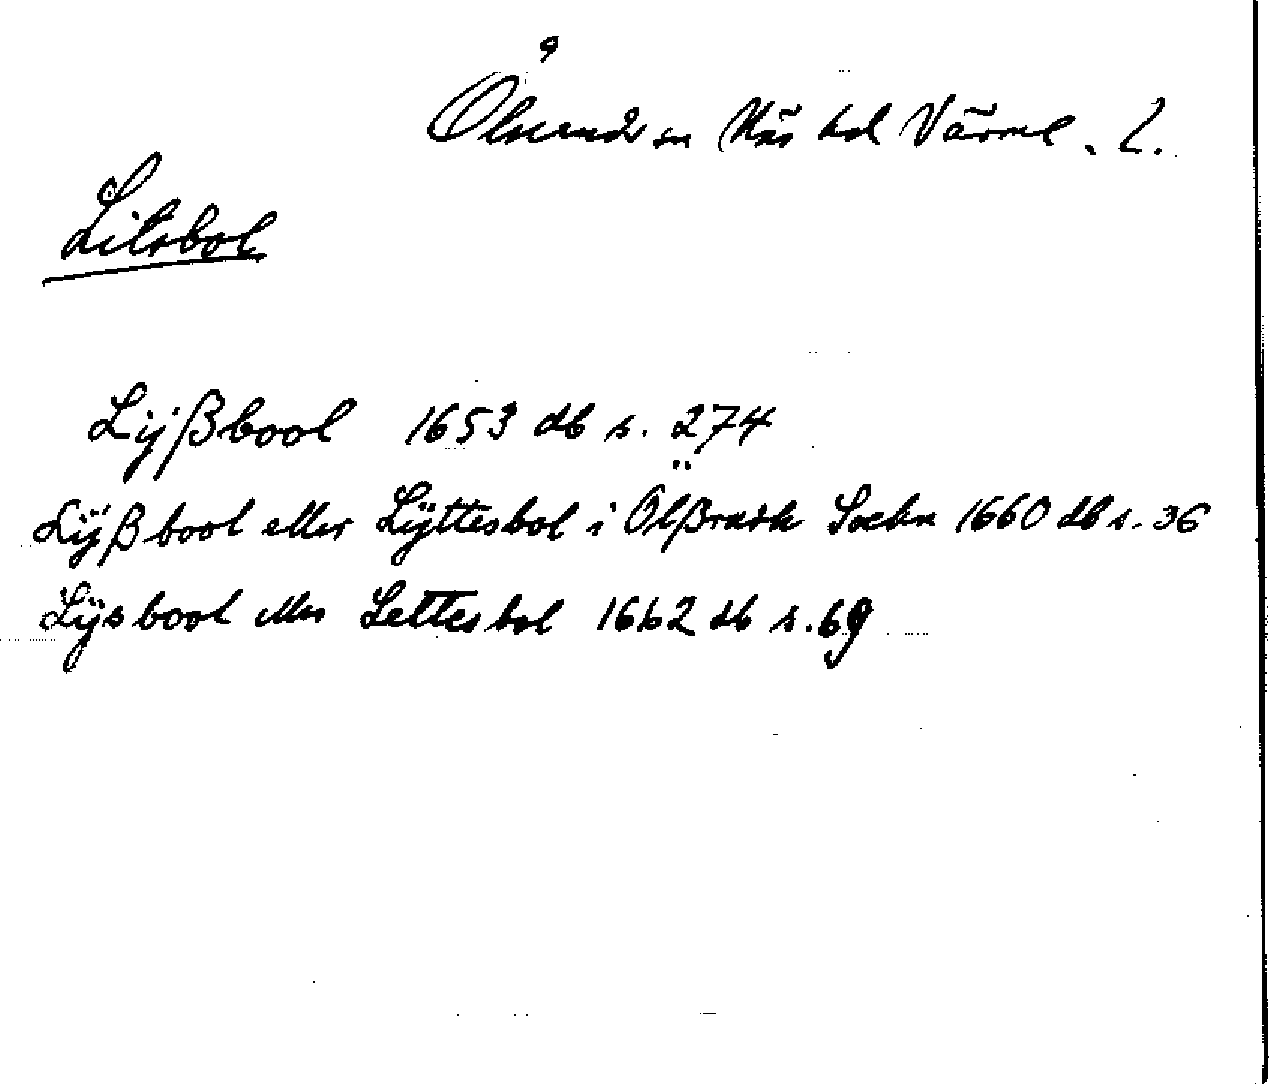 Ölserud sn Näs hd Värml. L.
Litsbol
Lijßbool 1653 db s. 274
Lÿßbool eller Lÿttesbol i Ölßrudh Sochn 1660 db s. 36
Lÿsbool eller Lettesbol 1662 db s. 69